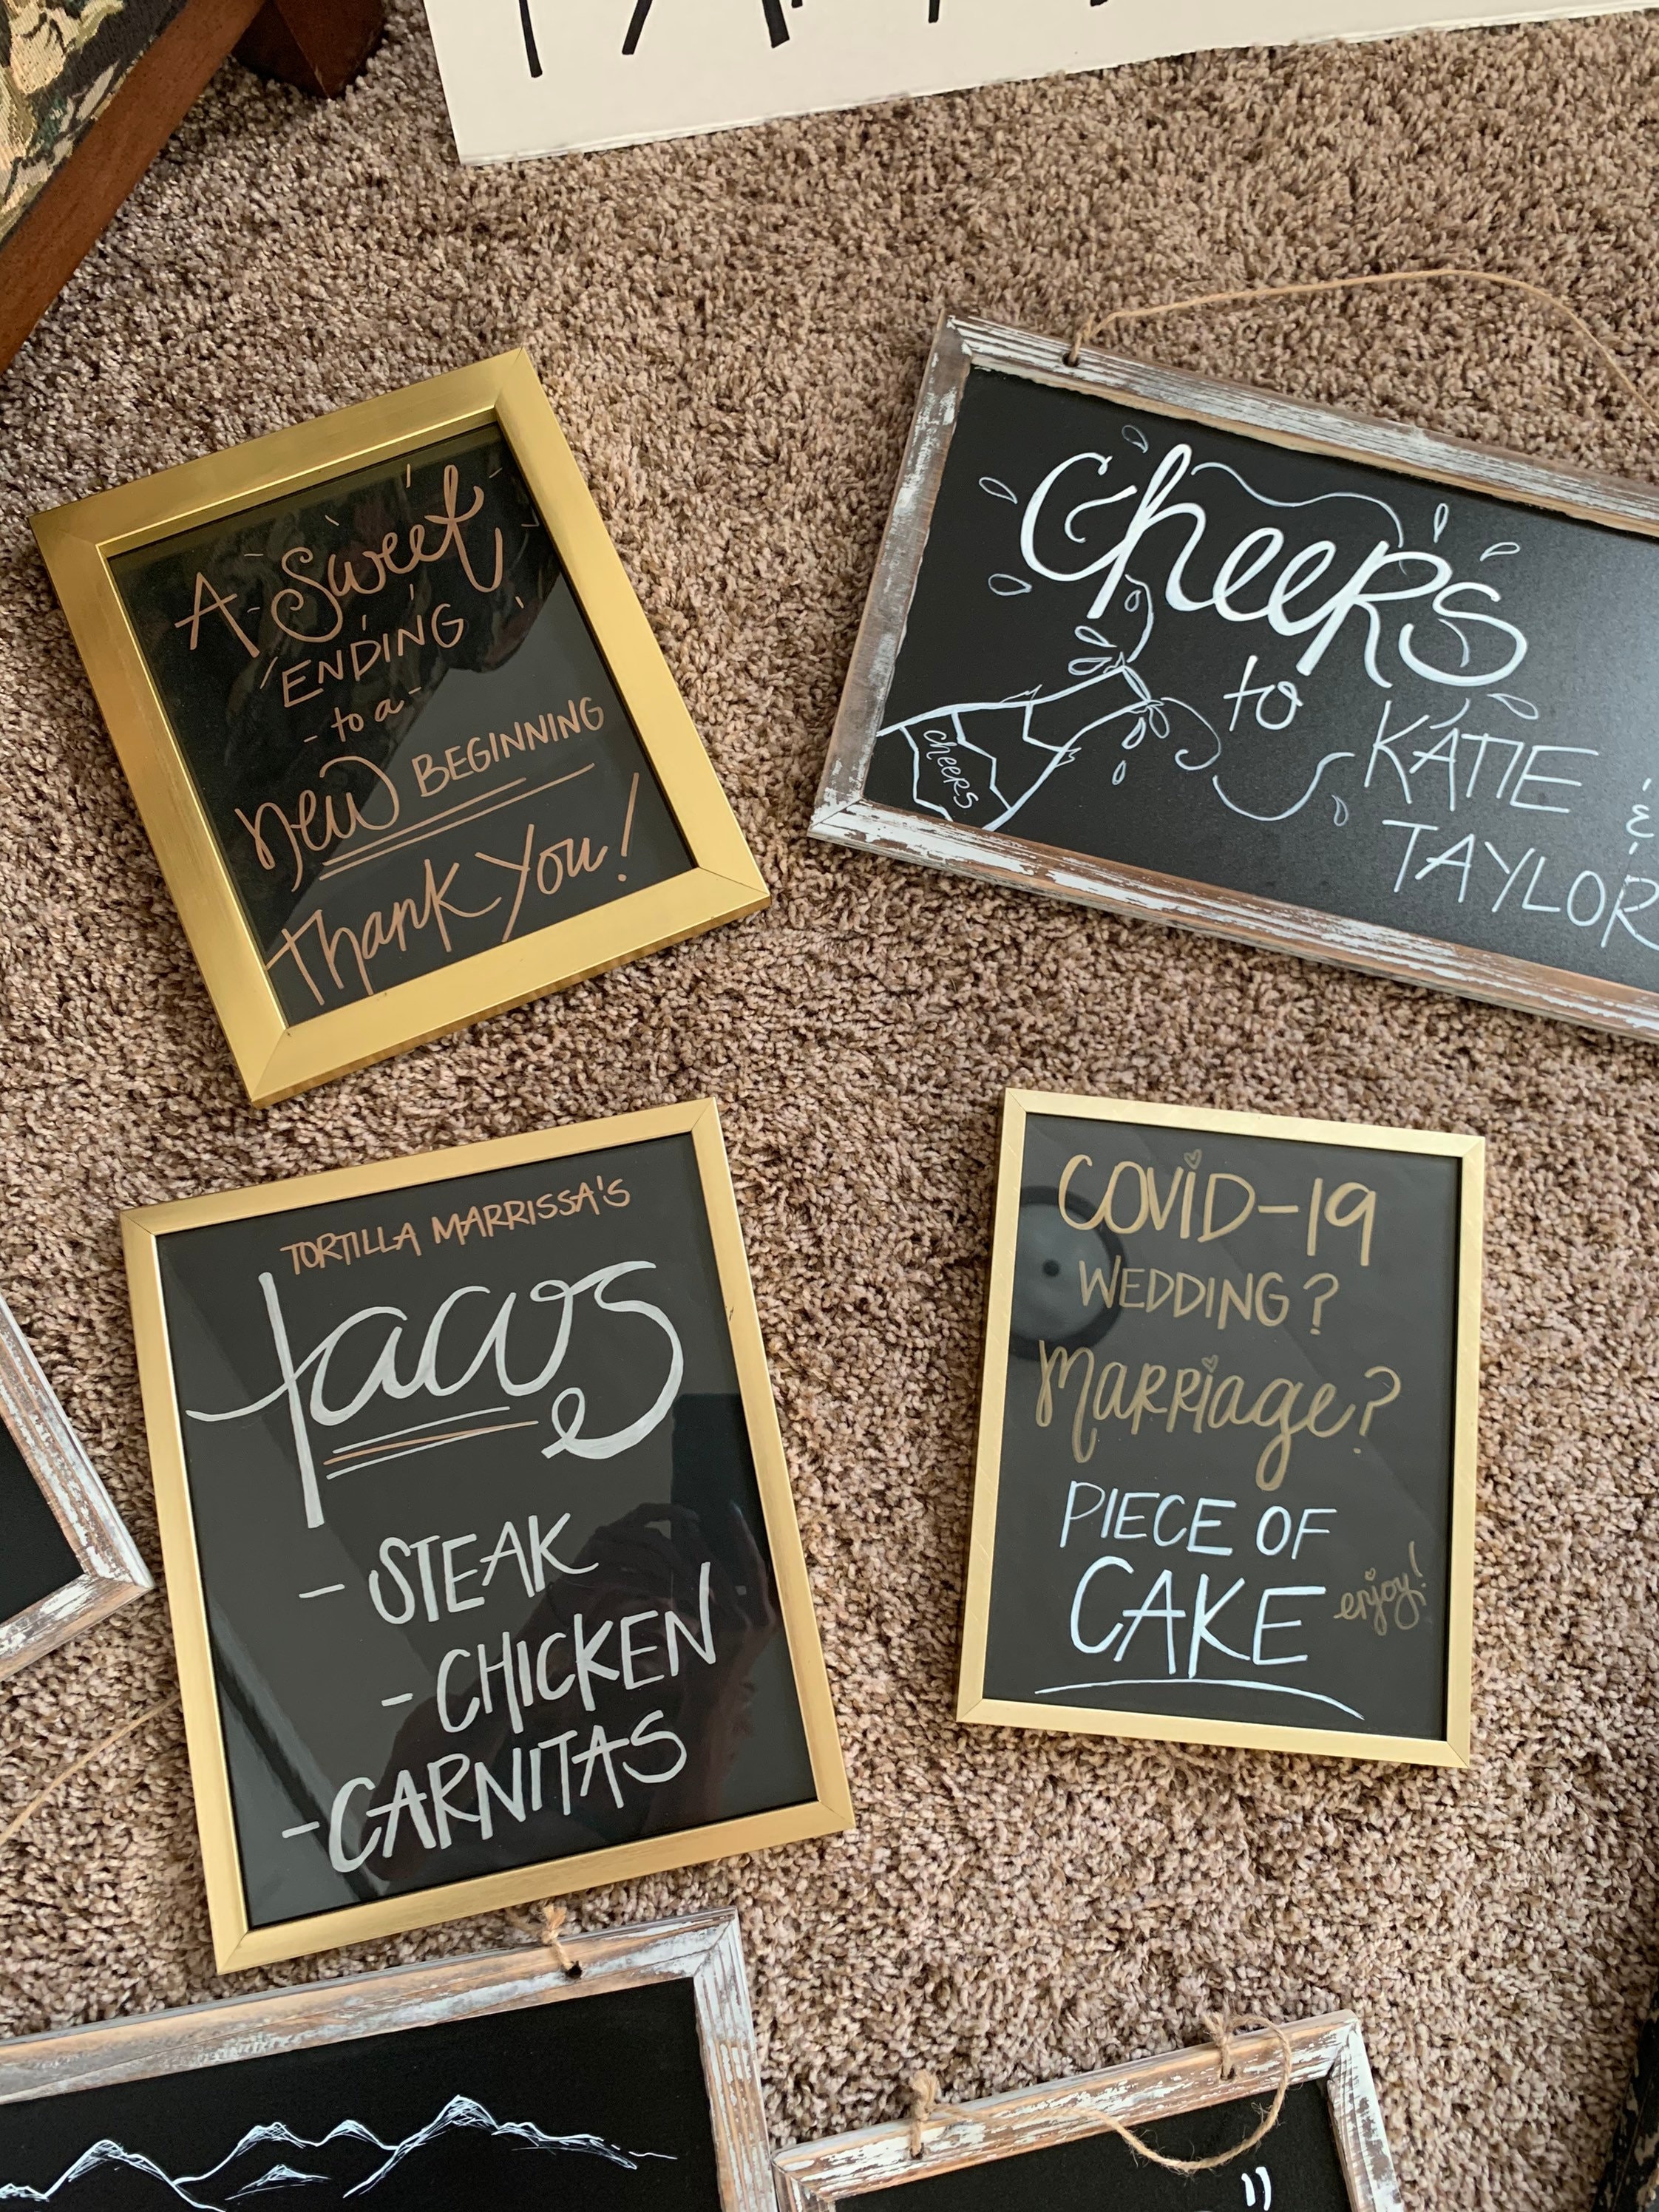 A Sweet
ENDING
- to a -
new BEGINNING
Thank You!
Cheers
to
KATIE &
TAYLOR
cheers
TORTILLA MARRISSA'S
tacos
- STEAK
- CHICKEN
- CARNITAS
COVID-19
WEDDING?
Marriage?
PIECE OF
CAKE
enjoy!